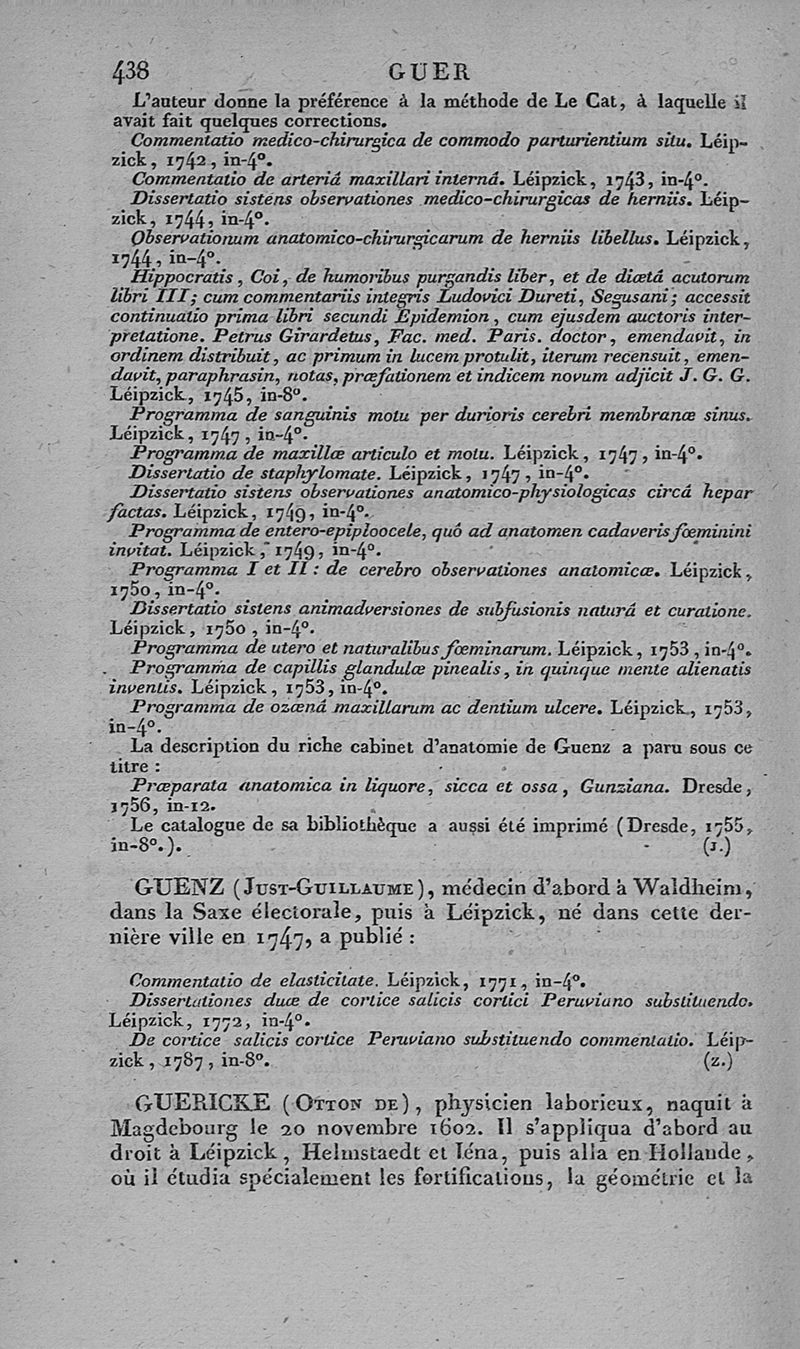 438 GUER
L'auteur donne la préférence à la méthode de Le Cat, à laquelle il
avait fait quelques corrections.
Commentatio medico-chirurgica de commodo parturientium situ. Léip-
zick, 1742, in-4°.
Commentatio de arteriâ maxillari internâ. Léipzick, 1743, in-4°.
Dissertatio sistens observationes medico-chirurgicas de herniis. Léip-
zick, 1744, in-4°.
Observationum anatomico-chirurgicarum de herniis libellus. Léipzick,
1744, in-4°.
Hippocratis, Coi, de humoribus purgandis liber, et de diætâ acutorum
libri III; cum commentariis integris Ludovici Dureti, Segusani; accessit
continuatio prima libri secundi Epidemion, cum ejusdem auctoris inter-
pretatione. Petrus Girardetus, Fac. med. Paris. doctor, emendavit, in
ordinem distribuit, ac primum in lucem protulit, iterum recensuit, emen-
davit, paraphrasin, notas, præfationem et indicem novum adjicit J. G. G.
Léipzick, 1745, in-8°.
Programma de sanguinis motu per durioris cerebri membranæ sinus.
Léipzick, 1747, in-4°.
Programma de maxillæ articulo et motu. Léipzick, 1747, in-4°.
Dissertatio de staphylomate. Léipzick, 1747, in-4°.
Dissertatio sistens observationes anatomico-physiologicas circâ hepar
factas. Léipzick, 1749, in-4°.
Programma de entero-epiploocele, quô ad anatomen cadaveris fœminini
invitat. Léipzick, 1749, in-4°.
Programma I et II : de cerebro observationes anatomicæ. Léipzick,
1750, in-4°.
Dissertatio sistens animadversiones de subfusionis naturâ et curatione.
Léipzick, 1750, in-4°.
Programma de utero et naturalibus fœminarum. Léipzick, 1753, in-4°.
Programma de capillis glandulæ pinealis, in quinque mente alienatis
inventis. Léipzick, 1753, in-4°.
Programma de ozœnâ maxillarum ac dentium ulcere. Léipzick, 1753,
in-4°.
La description du riche cabinet d'anatomie de Guenz a paru sous ce
titre :
Præparata anatomica in liquore, sicca et ossa, Gunziana. Dresde,
1756, in-12.
Le catalogue de sa bibliothèque a aussi été imprimé (Dresde, 1755,
in-8°.). (J.)
GUENZ (Just-Guillaume), médecin d'abord à Waldheim,
dans la Saxe électorale, puis à Léipzick, né dans cette der-
nière ville en 1747, a publié :
Commentatio de elasticitate. Léipzick, 1771, in-4°.
Dissertationes duæ de cortice salicis cortici Peruviano substituendo.
Léipzick, 1772, in-4°.
De cortice salicis cortice Peruviano substituendo commentatio. Léip-
zick, 1787, in-8°. (z.)
GUERICKE (Otton de), physicien laborieux, naquit à
Magdebourg le 20 novembre 1602. Il s'appliqua d'abord au
droit à Léipzick, Helmstaedt et Iéna, puis alla en Hollande,
où il étudia spécialement les fortifications, la géométrie et la